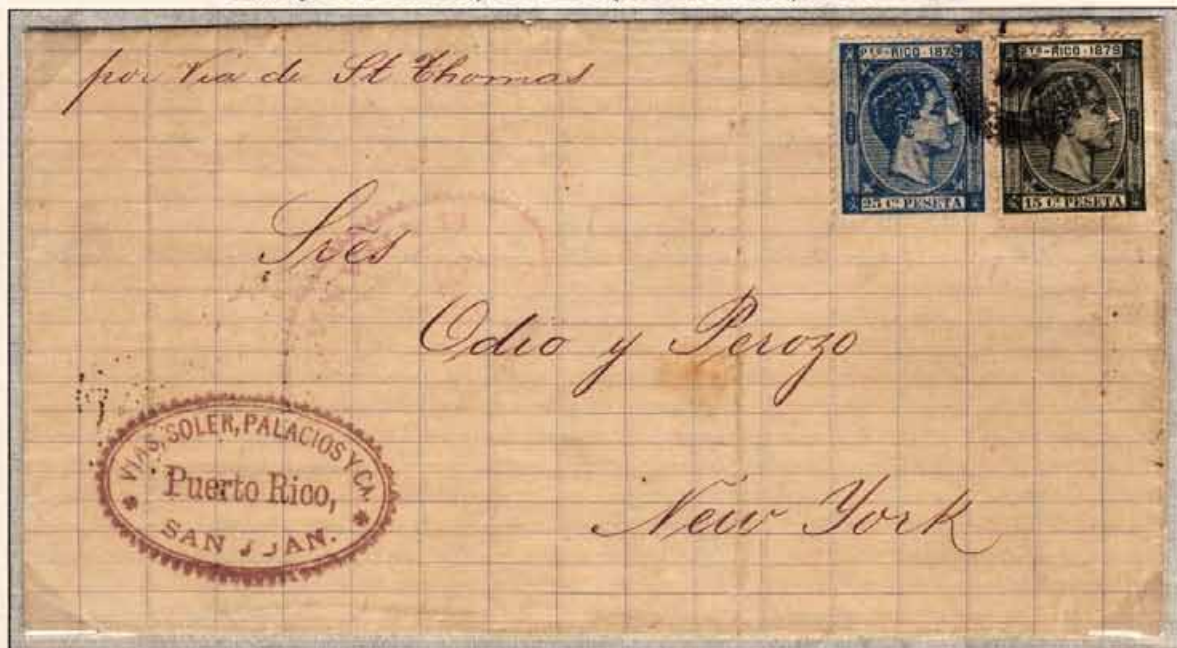 por Via de St Thomas
PTO-RICO-1879
25 Cs PESETA
PTO-RICO-1879
15 Cs PESETA
Srēs
Odio y Perozo
New York
VIAS, SOLER, PALACIOS Y CA.
Puerto Rico,
SAN JUAN.